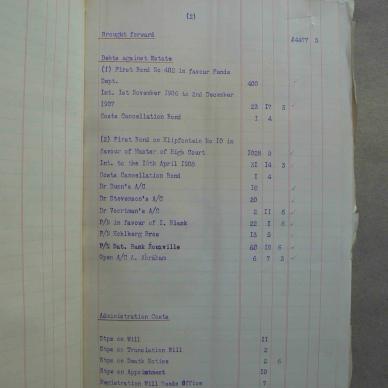 (2)
Brought forward £4477 5
Debts against Estate
(1) First Bond No 482 in favour Funds
Dept. 400
Int. 1st November 1906 to 2nd December
1907 23 17 3
Costs Cancellation Bond 1 4
(2) First Bond on Klipfontein No 10 in
favour of Master of High Court 1028 5
Int. to the 16th April 1908 31 14 3
Costs Cancellation Bond 1 4
Dr Dunn's A/C 10
Dr Stevenson's A/C 20
Dr Voortman's A/C 2 11 6
P/N in favour of I. Blank 22 1 8
P/N Kohlberg Bros 13 5
P/N Nat. Bank Rouxville 60 10 6
Open A/C A. Abraham 6 7 3
Administration Costs
Stps on Will 11
Stps on Translation Will 2
Stps on Death Notice 2 6
Stps on Appointment 10
Registration Will Deeds Office 7